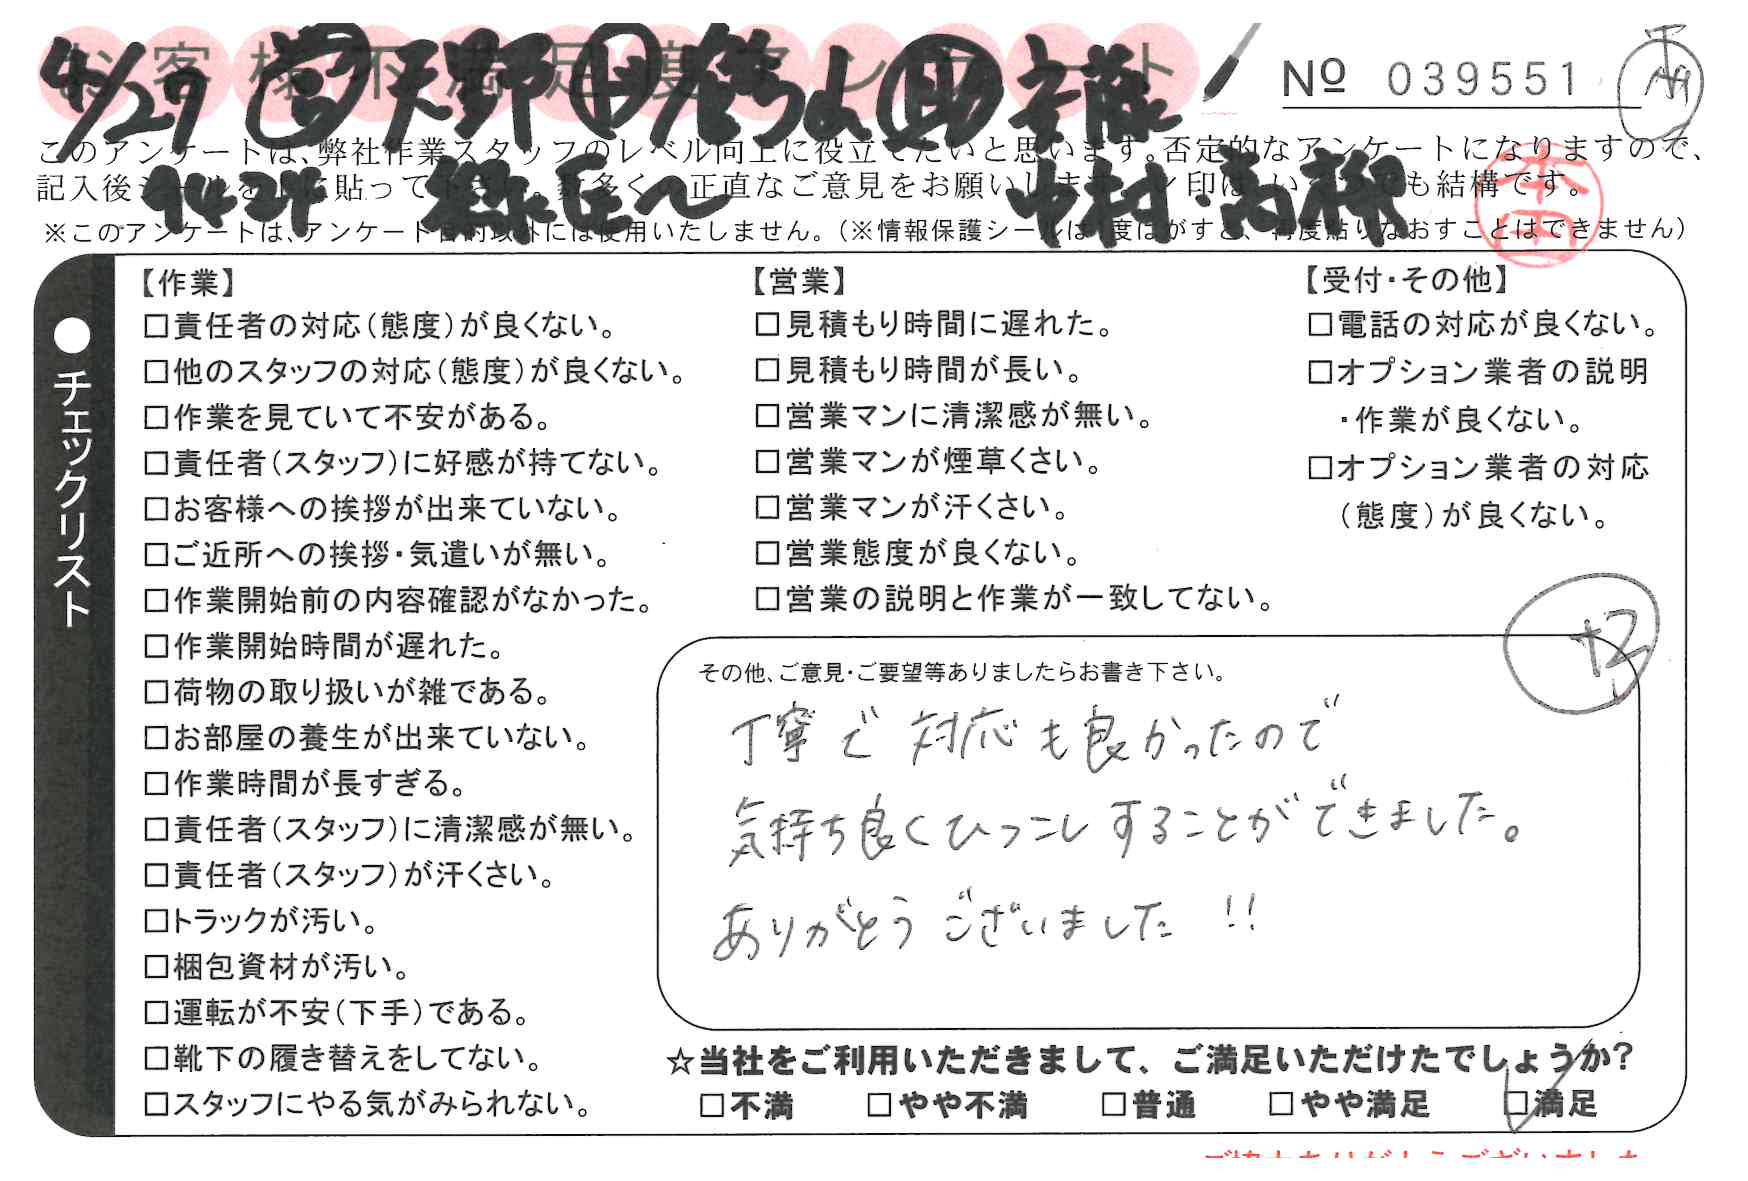 お客様不満足度アンケート
4/27 天野
№ 039551
このアンケートは、弊社作業スタッフのレベル向上に役立てたいと思います。否定的なアンケートになりますので、
記入後シールを上に貼って下さい。数多くの正直なご意見をお願いします。レ印はいくつでも結構です。
緑区へ 中村・高橋
本田
※このアンケートは、アンケート目的以外には使用いたしません。（※情報保護シールは1度はがすと、再度貼りなおすことはできません）
●チェックリスト
【作業】
□責任者の対応（態度）が良くない。
□他のスタッフの対応（態度）が良くない。
□作業を見ていて不安がある。
□責任者（スタッフ）に好感が持てない。
□お客様への挨拶が出来ていない。
□ご近所への挨拶・気遣いが無い。
□作業開始前の内容確認がなかった。
□作業開始時間が遅れた。
□荷物の取り扱いが雑である。
□お部屋の養生が出来ていない。
□作業時間が長すぎる。
□責任者（スタッフ）に清潔感が無い。
□責任者（スタッフ）が汗くさい。
□トラックが汚い。
□梱包資材が汚い。
□運転が不安（下手）である。
□靴下の履き替えをしてない。
□スタッフにやる気がみられない。
【営業】
□見積もり時間に遅れた。
□見積もり時間が長い。
□営業マンに清潔感が無い。
□営業マンが煙草くさい。
□営業マンが汗くさい。
□営業態度が良くない。
□営業の説明と作業が一致してない。
【受付・その他】
□電話の対応が良くない。
□オプション業者の説明
・作業が良くない。
□オプション業者の対応
（態度）が良くない。
+2
その他、ご意見・ご要望等ありましたらお書き下さい。
丁寧で対応も良かったので
気持ち良くひっこしすることができました。
ありがとうございました!!
☆当社をご利用いただきまして、ご満足いただけたでしょうか?
□不満 □やや不満 □普通 □やや満足 □満足
ご協力ありがとうございました